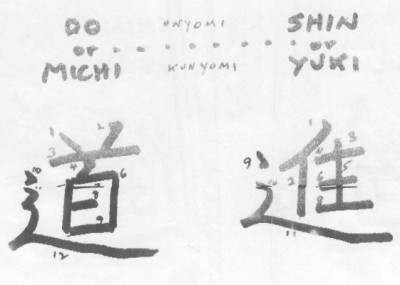 DO ONYOMI SHIN
or or
MICHI KUNYOMI YUKI
道 進